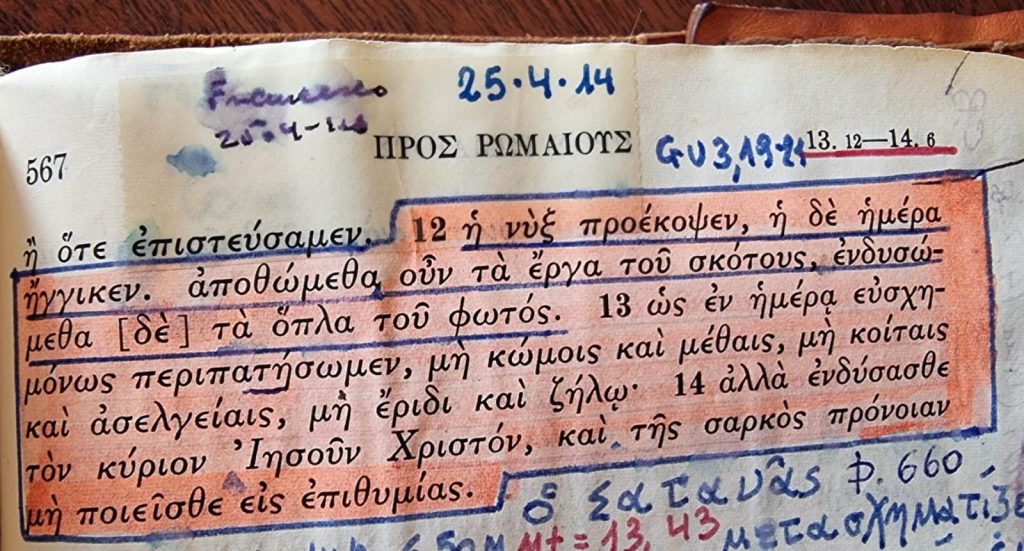 25·4·14
567 ΠΡΟΣ ΡΩΜΑΙΟΥΣ GV 3,19-21 13. 12—14. 6
ἢ ὅτε ἐπιστεύσαμεν. 12 ἡ νὺξ προέκοψεν, ἡ δὲ ἡμέρα
ἤγγικεν. ἀποθώμεθα οὖν τὰ ἔργα τοῦ σκότους, ἐνδυσώ-
μεθα [δὲ] τὰ ὅπλα τοῦ φωτός. 13 ὡς ἐν ἡμέρᾳ εὐσχη-
μόνως περιπατήσωμεν, μὴ κώμοις καὶ μέθαις, μὴ κοίταις
καὶ ἀσελγείαις, μὴ ἔριδι καὶ ζήλῳ· 14 ἀλλὰ ἐνδύσασθε
τὸν κύριον Ἰησοῦν Χριστόν, καὶ τῆς σαρκὸς πρόνοιαν
μὴ ποιεῖσθε εἰς ἐπιθυμίας.
ὁ Σατανᾶς p. 660
Mt = 13, 43 μετασχηματίζε